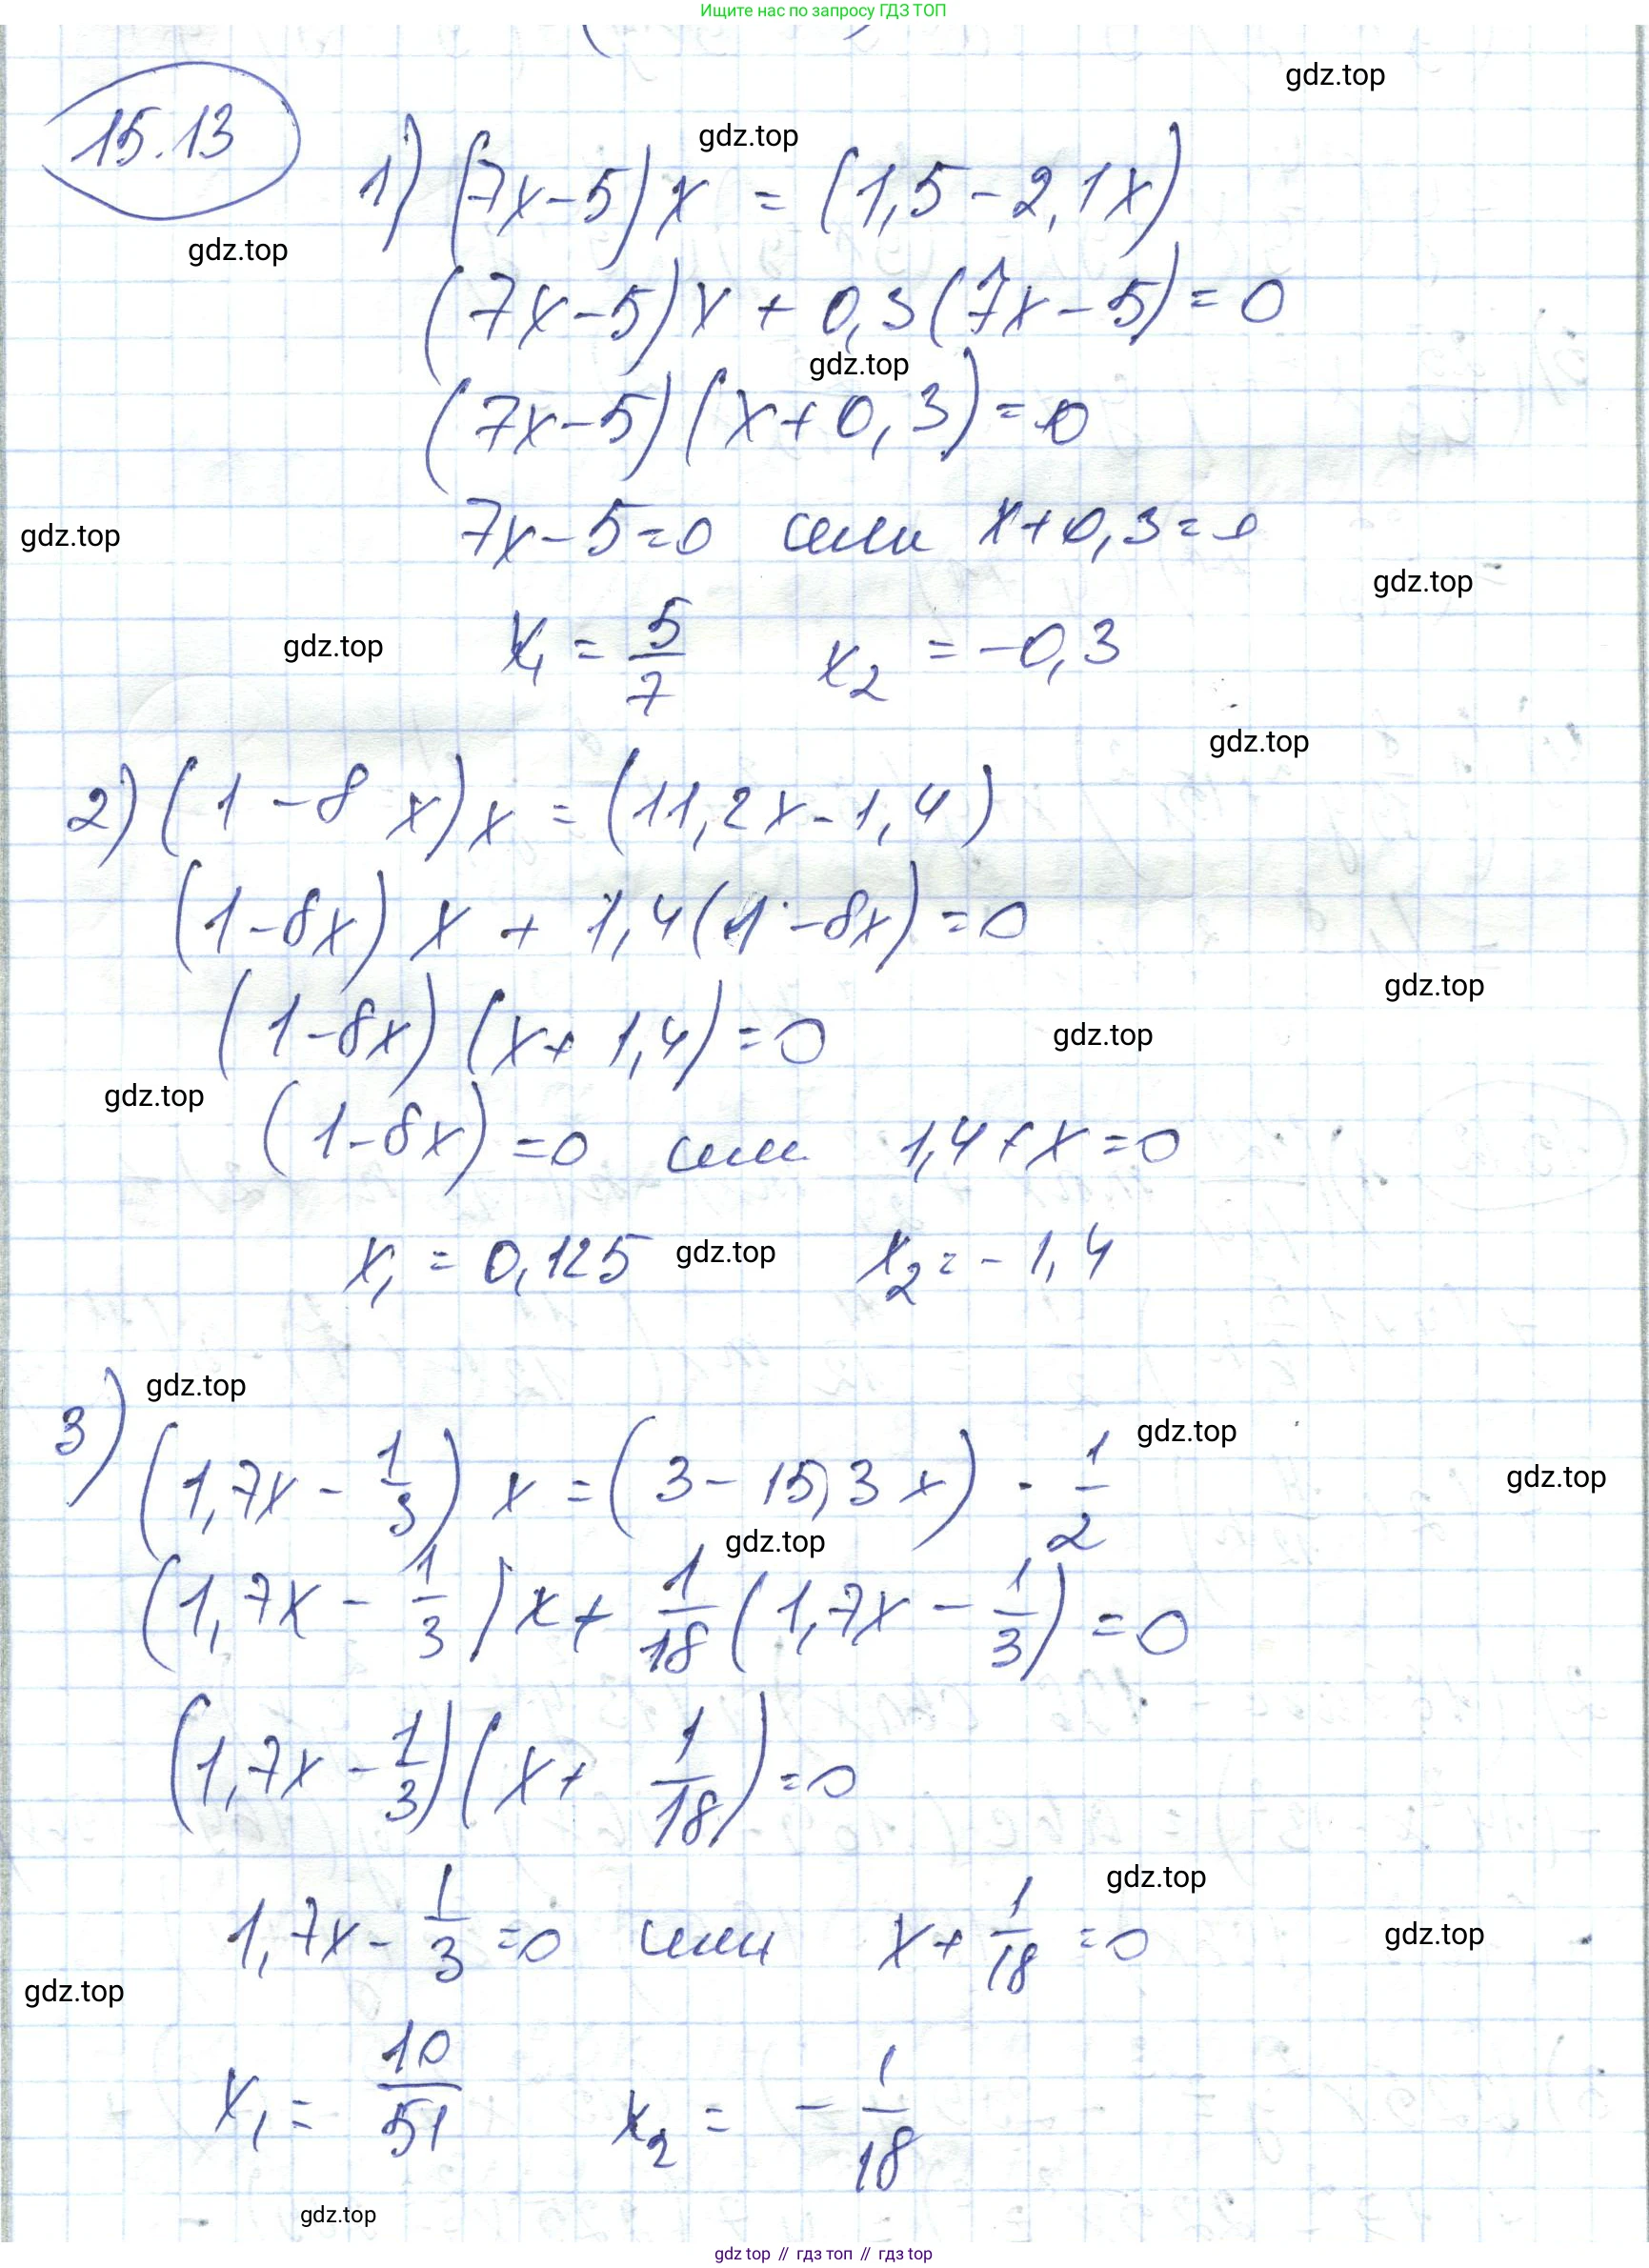 Ищите нас по запросу ГДЗ ТОП
gdz.top
15.13
gdz.top
1) (7x-5)x = (1,5-2,1x)
gdz.top
(7x-5)x + 0,3(7x-5)=0
gdz.top
(7x-5)(x+0,3)=0
gdz.top
7x-5=0 или x+0,3=0
gdz.top
gdz.top
x₁ = 5/7 x₂ = -0,3
gdz.top
2) (1-8x)x = (11,2x-1,4)
(1-8x)x + 1,4(1-8x)=0
gdz.top
(1-8x)(x+1,4)=0
gdz.top
gdz.top
(1-8x)=0 или 1,4+x=0
x₁ = 0,125 gdz.top x₂ = -1,4
gdz.top
gdz.top
3) (1,7x - 1/3) x = (3-15,3x) · 1/2
gdz.top
gdz.top
(1,7x - 1/3)x + 1/18 (1,7x - 1/3) = 0
(1,7x - 1/3)(x + 1/18) = 0
gdz.top
1,7x - 1/3 = 0 или x + 1/18 = 0
gdz.top
gdz.top
x₁ = 10/51 x₂ = - 1/18
gdz.top
gdz top // гдз топ // гдз top